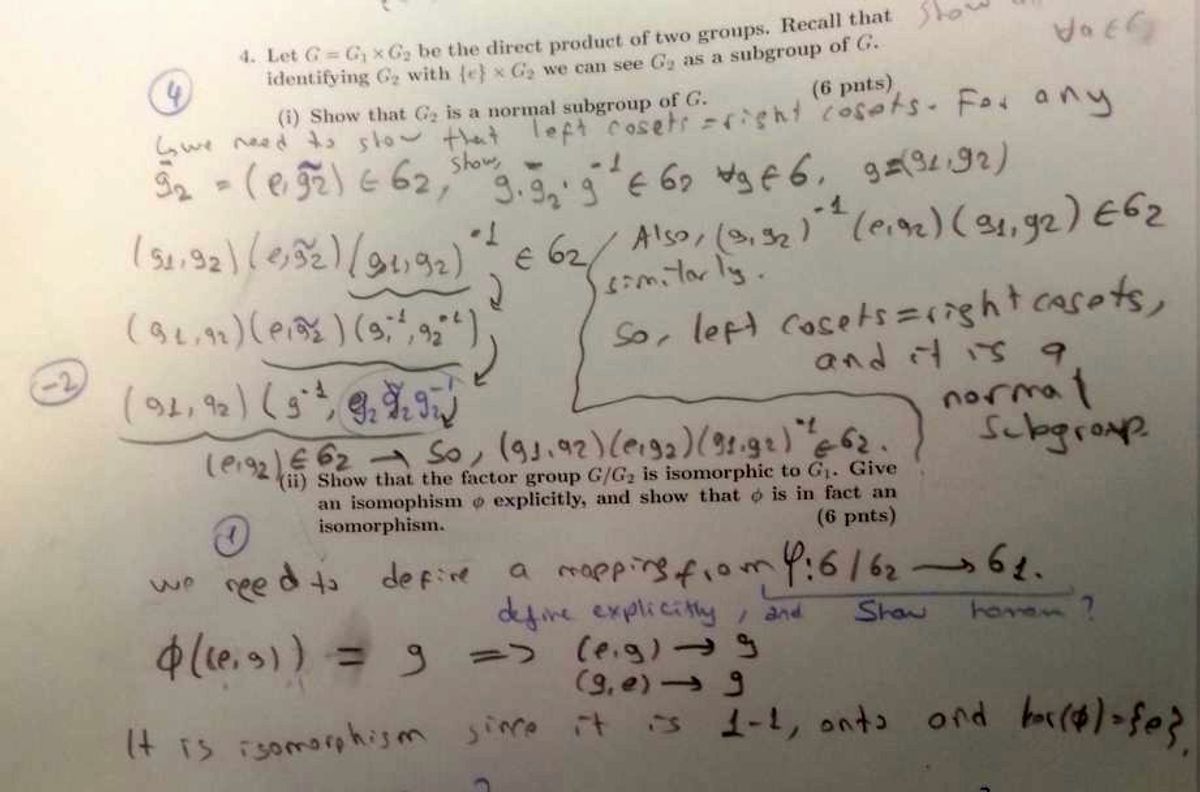 4. Let G = G₁ × G₂ be the direct product of two groups. Recall that
identifying G₂ with {e} × G₂ we can see G₂ as a subgroup of G.
Show
∀a ∈ G
4
(i) Show that G₂ is a normal subgroup of G.
(6 pnts)
↳ we need to show that left cosets = right cosets. For any
g̃₂ = (e, g̃₂) ∈ G₂, show, g·g̃₂·g⁻¹ ∈ G₂ ∀g ∈ G, g=(g₁,g₂)
(g₁,g₂)(e,g̃₂)(g₁,g₂)⁻¹ ∈ G₂
Also, (g₁,g₂)⁻¹(e,g₂)(g₁,g₂) ∈ G₂
similarly.
(g₁,g₂)(e,g̃₂)(g₁⁻¹,g₂⁻¹)
So, left cosets = right cosets,
and it is a
normal
subgroup.
-2
(g₁,g₂)(g⁻¹, g₂g̃₂g₂⁻¹)
(e,g₂) ∈ G₂ → So, (g₁,g₂)(e,g₂)(g₁,g₂)⁻¹ ∈ G₂.
(ii) Show that the factor group G/G₂ is isomorphic to G₁. Give
an isomophism ϕ explicitly, and show that ϕ is in fact an
isomorphism.
(6 pnts)
1
we need to define a mapping from φ: G/G₂ → G₁.
define explicitly, and Show homom?
ϕ((e,g)) = g => (e,g) → g
(g,e) → g
It is isomorphism since it is 1-1, onto and ker(ϕ)={e}.